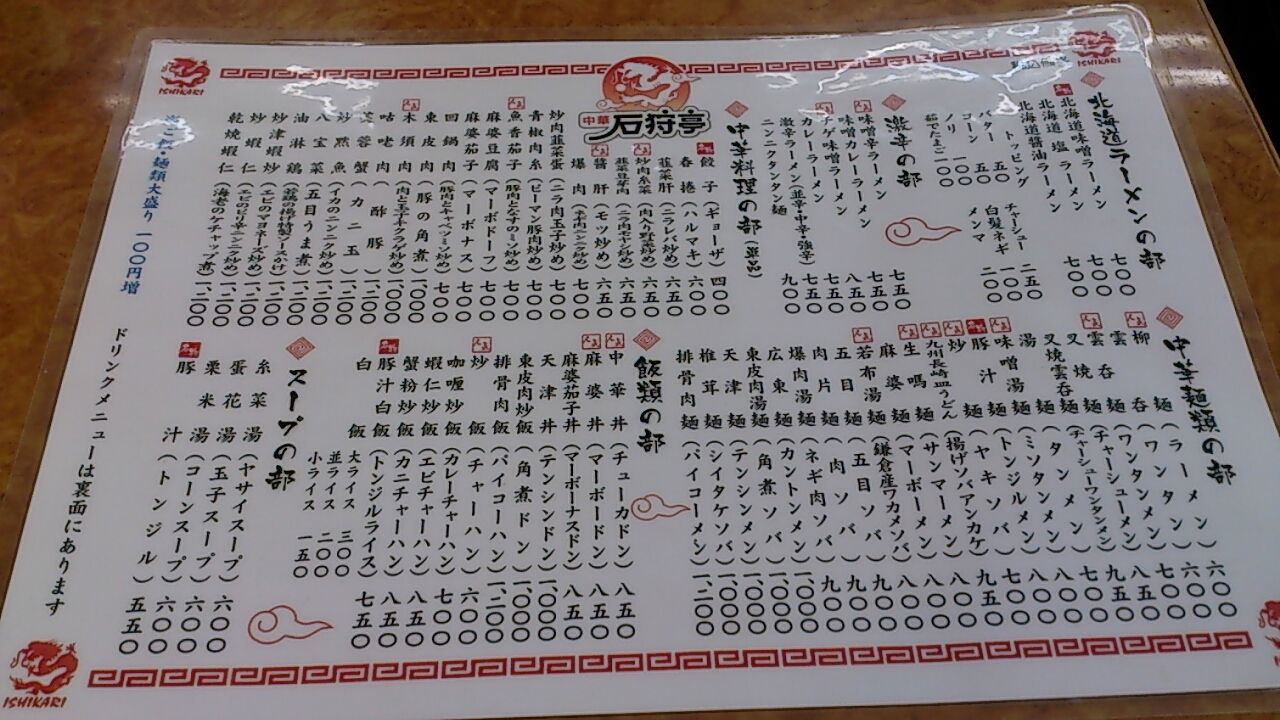 ISHIKARI
中華 石狩亭
北海道ラーメンの部
北海道味噌ラーメン 七〇〇
北海道塩ラーメン 七〇〇
北海道醤油ラーメン 七〇〇
トッピング
バター 五〇
コーン 一〇〇
ノリ 五〇
茹でたまご 一〇〇
チャーシュー 二五〇
白髪ネギ 一〇〇
メンマ 二〇〇
激辛の部
味噌辛ラーメン 七五〇
味噌カレーラーメン 七五〇
チゲ味噌ラーメン 八五〇
カレーラーメン 七五〇
激辛ラーメン(並辛・中辛・強辛) 七五〇
ニンニクタンタン麺 九〇〇
中華料理の部(単品)
餃子(ギョーザ) 四〇〇
春捲(ハルマキ) 六〇〇
韮菜肝(ニラレバ炒め) 六五〇
炒肉糸菜(肉入り野菜炒め) 六五〇
韮菜豆芽肉(ニラ肉モヤシ炒め) 六五〇
醤肝(モツ炒め) 六五〇
爆肉 七〇〇
炒肉韮菜蛋(ニラ肉玉子炒め) 七〇〇
青椒肉糸(ピーマン豚肉炒め) 七〇〇
魚香茄子(豚肉となすのミソ炒め) 七〇〇
麻婆豆腐(マーボドーフ) 七〇〇
麻婆茄子(マーボナス) 七〇〇
回鍋肉(豚肉とキャベツミソ炒め) 七〇〇
東皮肉(豚の角煮) 一、〇〇〇
木須肉(肉と玉子キクラゲ炒め) 一、〇〇〇
咕咾肉(酢豚) 一、二〇〇
芙蓉蟹(カニ玉) 一、二〇〇
炒魷魚(イカのニンニク炒め) 一、二〇〇
八宝菜(五目うま煮) 一、二〇〇
油淋鶏(若鶏の揚げ特製ソースかけ) 一、二〇〇
炒津蝦仁(エビのマヨネーズ炒め) 一、二〇〇
炒蝦仁(エビのピリ辛ニンニク炒め) 一、二〇〇
乾焼蝦仁(海老のケチャップ煮) 一、二〇〇
麺類大盛り 一〇〇円増
中華麺類の部
麺(ラーメン) 六〇〇
柳呑(ワンタン) 六〇〇
雲呑麺(ワンタンメン) 七〇〇
叉焼麺(チャーシューメン) 八五〇
叉焼雲呑麺(チャーシューワンタンメン) 九五〇
湯麺(タンメン) 七〇〇
味噌湯麺(ミソタンメン) 八〇〇
豚汁麺(トンジルメン) 七〇〇
炒麺(ヤキソバ) 九五〇
九州長崎皿うどん(揚げソバアンカケ) 八〇〇
生嗎麺(サンマーメン) 八〇〇
麻婆麺(マーボーメン) 八〇〇
若布湯麺(鎌倉産ワカメソバ) 九〇〇
五目麺(五目ソバ) 九〇〇
肉片麺(肉ソバ) 九〇〇
爆肉湯麺(ネギ肉ソバ) 一、〇〇〇
広東麺(カントンメン) 一、〇〇〇
東皮肉湯麺(角煮ソバ) 一、〇〇〇
天津麺(テンシンメン) 一、〇〇〇
椎茸麺(シイタケソバ) 一、〇〇〇
排骨肉麺(パイコーメン) 一、二〇〇
飯類の部
中華丼(チューカドン) 八五〇
麻婆丼(マーボードン) 八五〇
麻婆茄子丼(マーボーナスドン) 八五〇
天津丼(テンシンドン) 一、〇〇〇
東皮肉炒飯(角煮ドン) 一、〇〇〇
排骨肉飯(パイコーハン) 一、二〇〇
炒飯(チャーハン) 六〇〇
咖喱炒飯(カレーチャーハン) 七〇〇
蝦仁炒飯(エビチャーハン) 八五〇
蟹粉炒飯(カニチャーハン) 八五〇
豚汁白飯(トンジルライス) 七五〇
白飯
大ライス 三〇〇
並ライス 二〇〇
小ライス 一五〇
スープの部
糸菜湯(ヤサイスープ) 六〇〇
蛋花湯(玉子スープ) 六〇〇
栗米湯(コーンスープ) 六〇〇
豚汁(トンジル) 五五〇
ドリンクメニューは裏面にあります
ISHIKARI